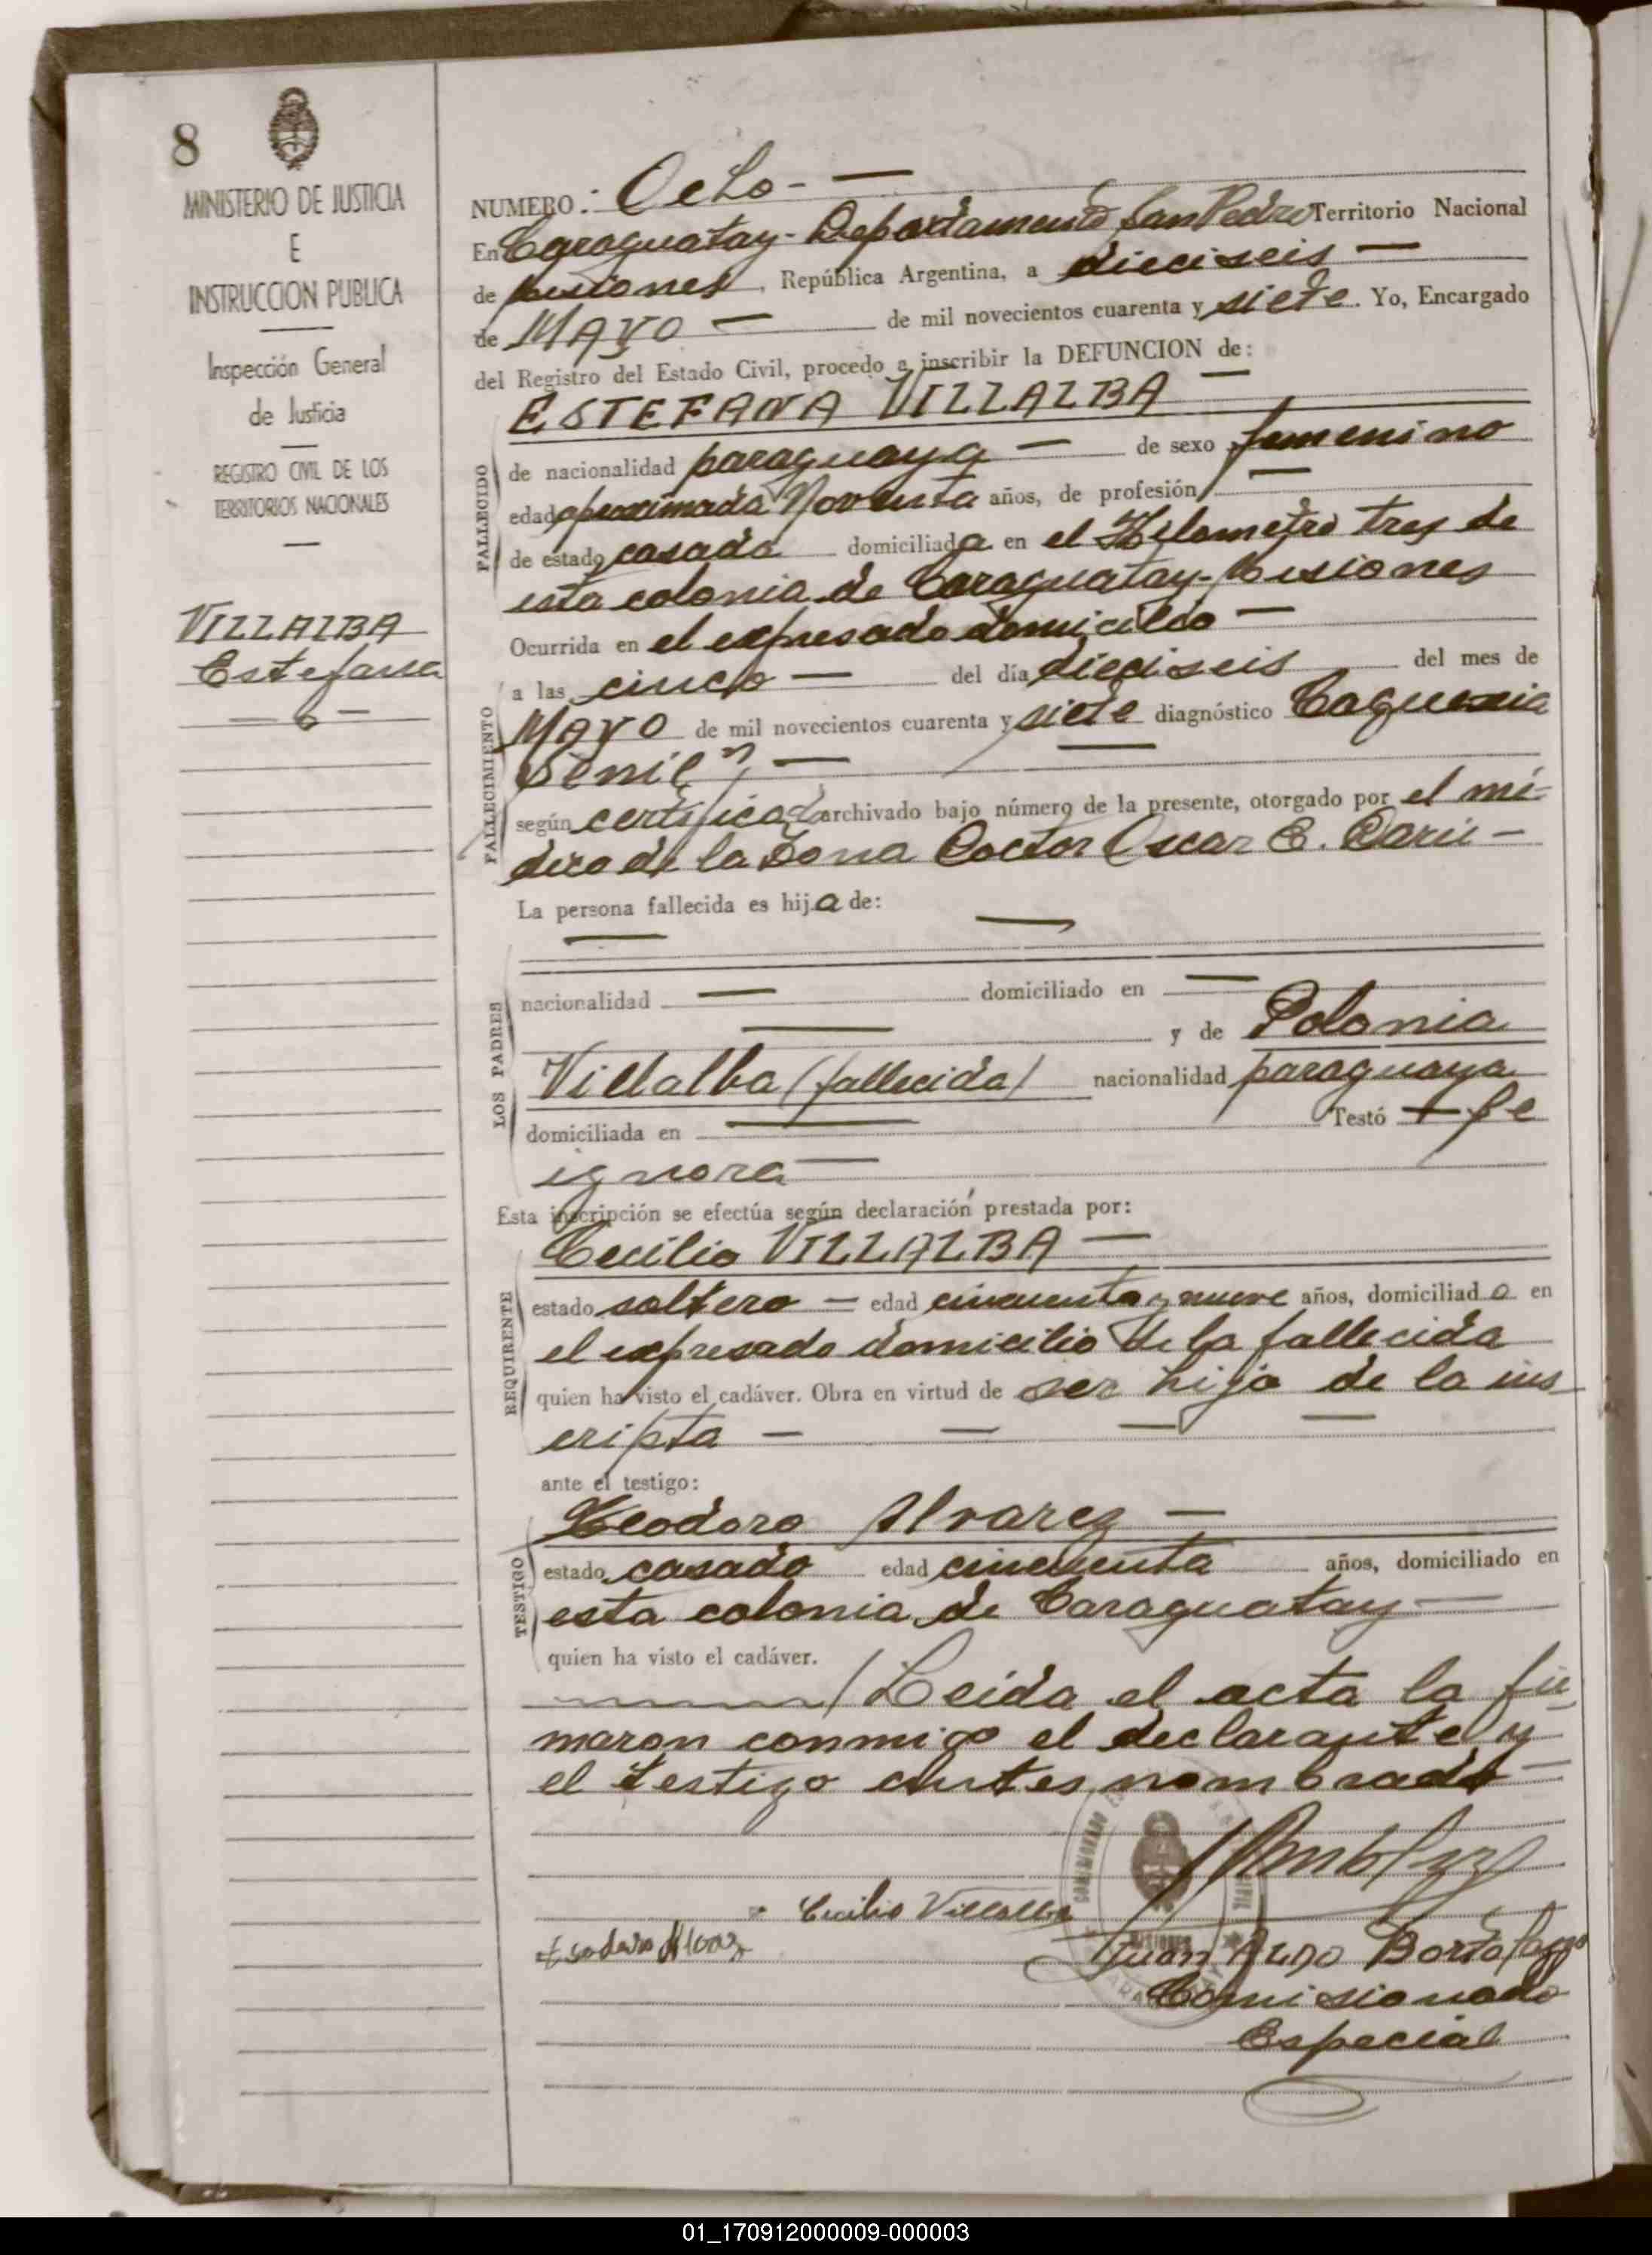 8
MINISTERIO DE JUSTICIA
E
INSTRUCCION PUBLICA
Inspección General
de Justicia
REGISTRO CIVIL DE LOS
TERRITORIOS NACIONALES
VILLALBA
Estefana
NUMERO: Ocho - —
En Caraguatay - Departamento San Pedro Territorio Nacional
de Misiones, República Argentina, a dieciseis —
de MAYO — de mil novecientos cuarenta y siete. Yo, Encargado
del Registro del Estado Civil, procedo a inscribir la DEFUNCION de:
ESTEFANA VILLALBA —
FALLECIDO
de nacionalidad paraguaya — de sexo femenino
edad aproximada Noventa años, de profesión —
de estado casada domiciliada en el Kilometro tres de
esta colonia de Caraguatay - Misiones
FALLECIMIENTO
Ocurrida en el expresado domicilio —
a las cinco — del día dieciseis del mes de
MAYO de mil novecientos cuarenta y siete diagnóstico Caquexia
Senil", —
según certificado archivado bajo número de la presente, otorgado por el mé-
dico de la Zona Doctor Oscar E. —
La persona fallecida es hija de: —
—
LOS PADRES
nacionalidad — domiciliado en —
— y de Polonia
Villalba (fallecida) nacionalidad paraguaya
domiciliada en — Testó + se
ignora —
Esta inscripción se efectúa según declaración prestada por:
Cecilio VILLALBA —
REQUIRENTE
estado soltero — edad cincuenta y nueve años, domiciliado en
el expresado domicilio de la fallecida
quien ha visto el cadáver. Obra en virtud de ser hijo de la ins
cripta — — — —
ante el testigo:
Teodoro Alvarez —
TESTIGO
estado casado edad cincuenta años, domiciliado en
esta colonia de Caraguatay —
quien ha visto el cadáver.
/ Leída el acta la fir
maron conmigo el declarante y
el testigo antes nombrado —
Cecilio Villalba
Juan
Comisionado
Especial
01_170912000009-000003